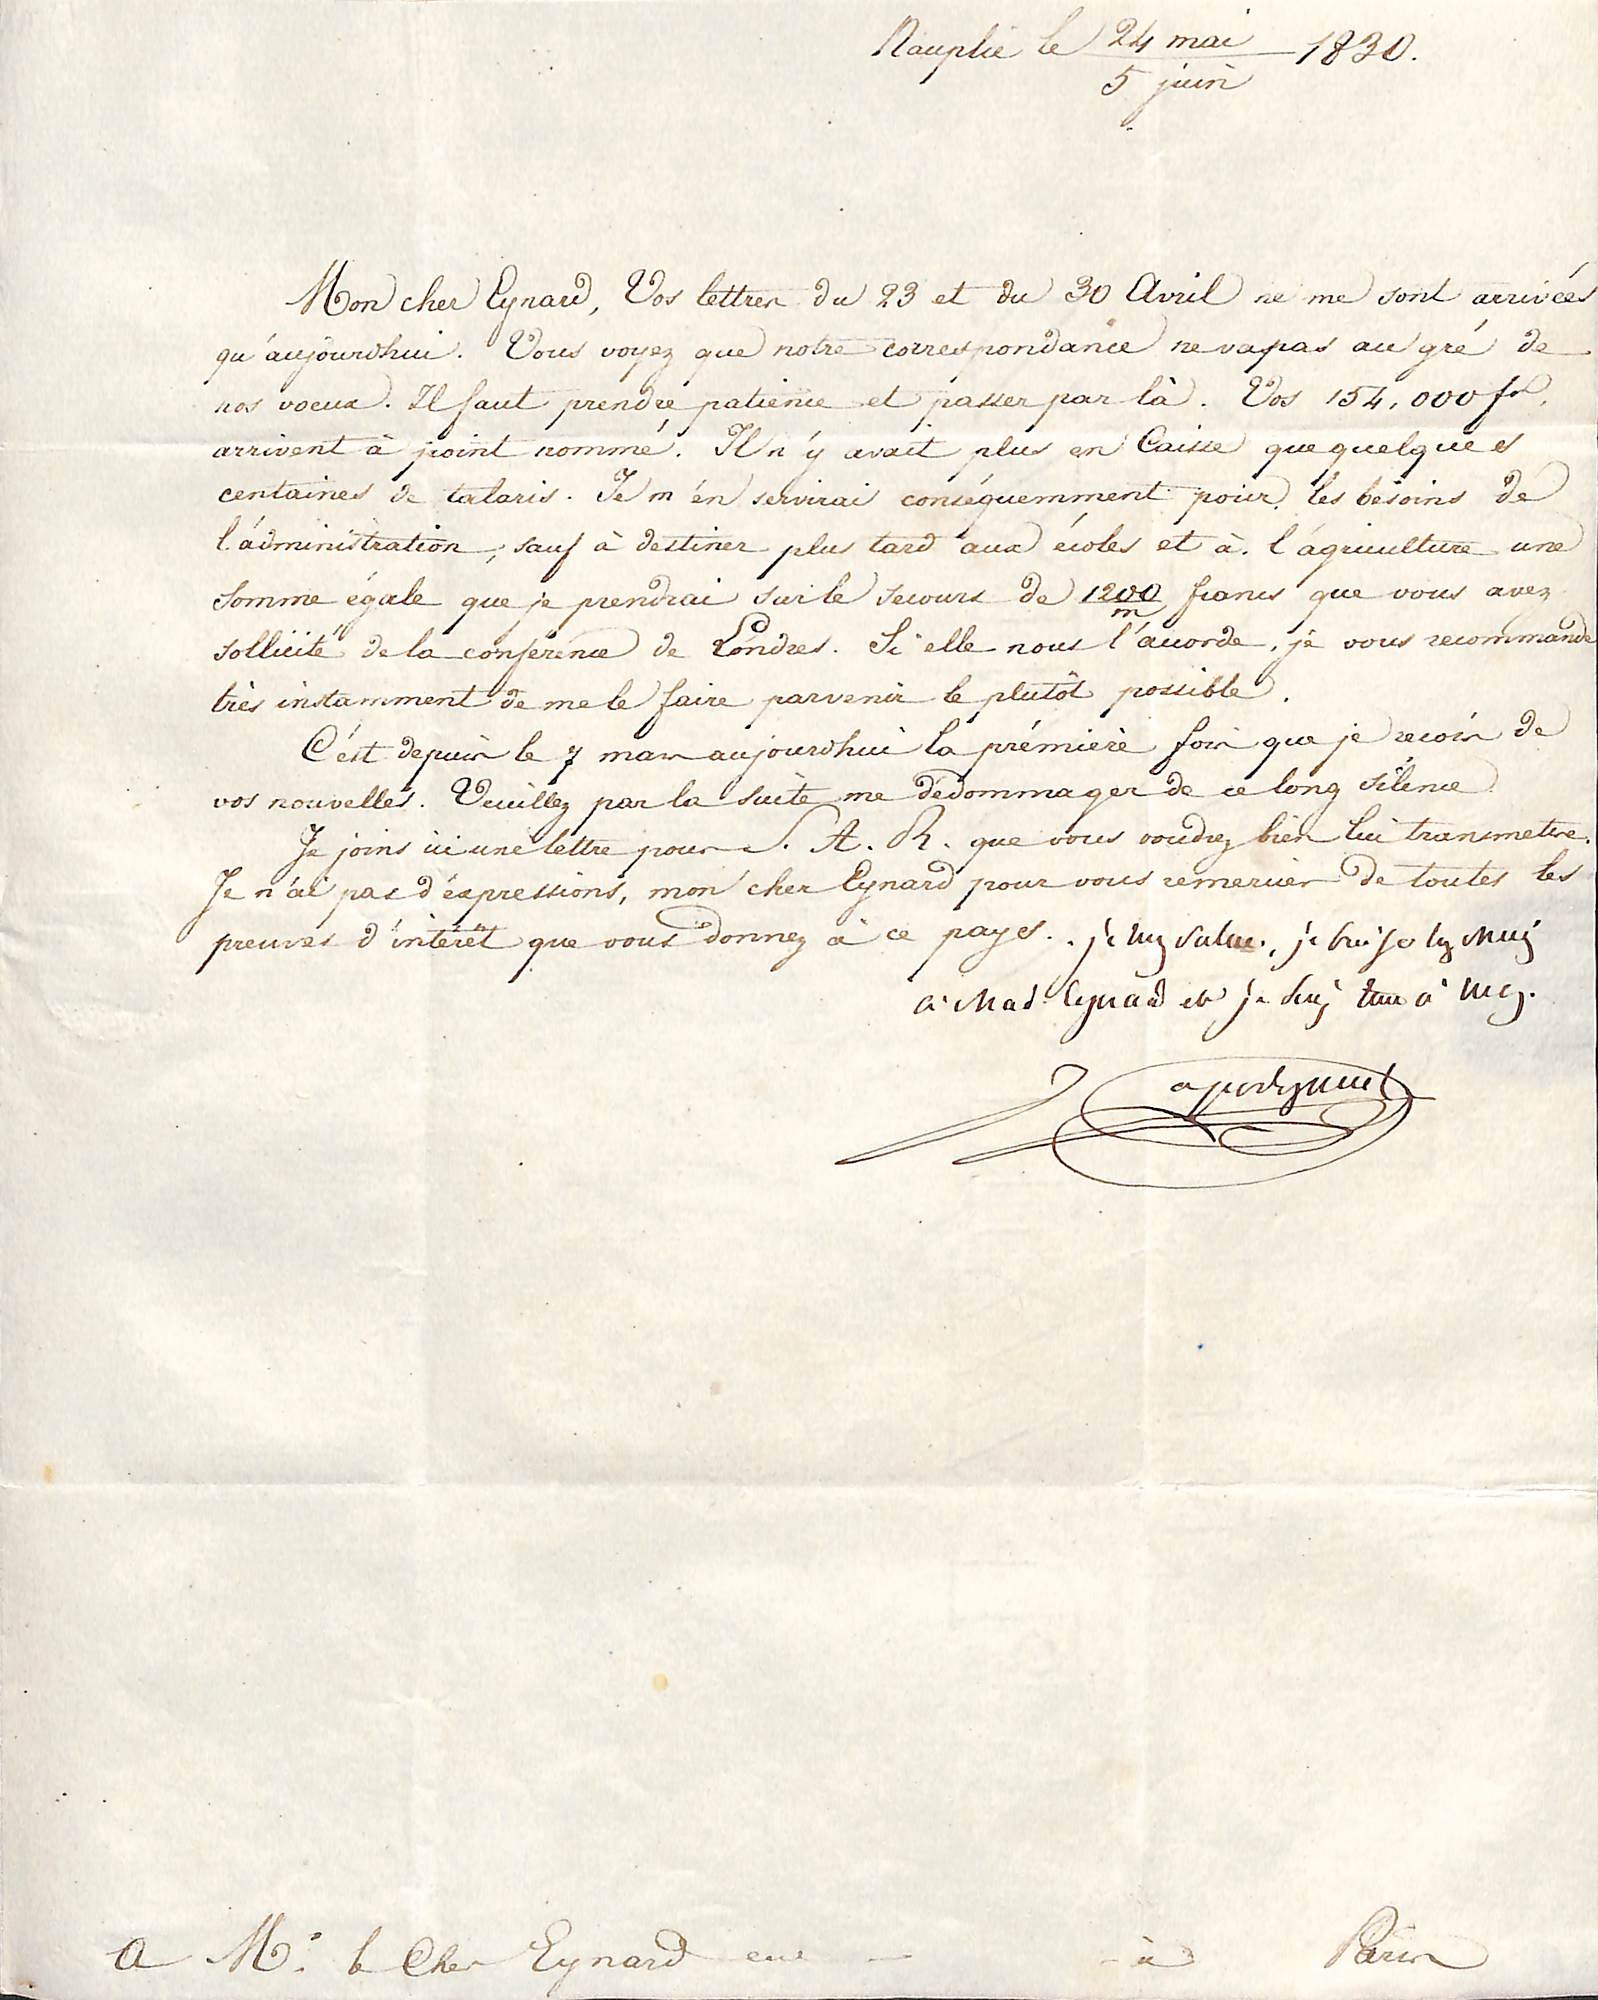 Nauplie le 24 mai / 5 juin 1830.
Mon cher Eynard, Vos lettres du 23 et du 30 Avril ne me sont arrivées
qu'aujourdhui. Vous voyez que notre correspondance ne va pas au gré de
nos voeux. Il faut prendre patience et passer par là. Vos 154,000 fr.
arrivent à point nommé. Il n'y avait plus en Caisse que quelques
centaines de talaris. Je m'en servirai conséquemment pour les besoins de
l'administration, sauf à destiner plus tard aux écoles et à l'agriculture une
somme égale que je prendrai sur le secours de 1200 m francs que vous avez
sollicité de la conférence de Londres. Si elle nous l'accorde, je vous recommande
très instamment de me le faire parvenir le plutôt possible.
C'est depuis le 7 mars aujourdhui la prémière fois que je recois de
vos nouvelles. Veuillez par la suite me dédommager de ce long silence
Je joins ici une lettre pour S. A. R. que vous voudrez bien lui transmettre.
Je n'ai pas d'expressions, mon cher Eynard pour vous remercier de toutes les
preuves d'intérêt que vous donnez à ce pays. je vous salue, je baise les mains
à Mad. Eynard et je suis tout à vous.
A Mr. le Cher Eynard à Paris